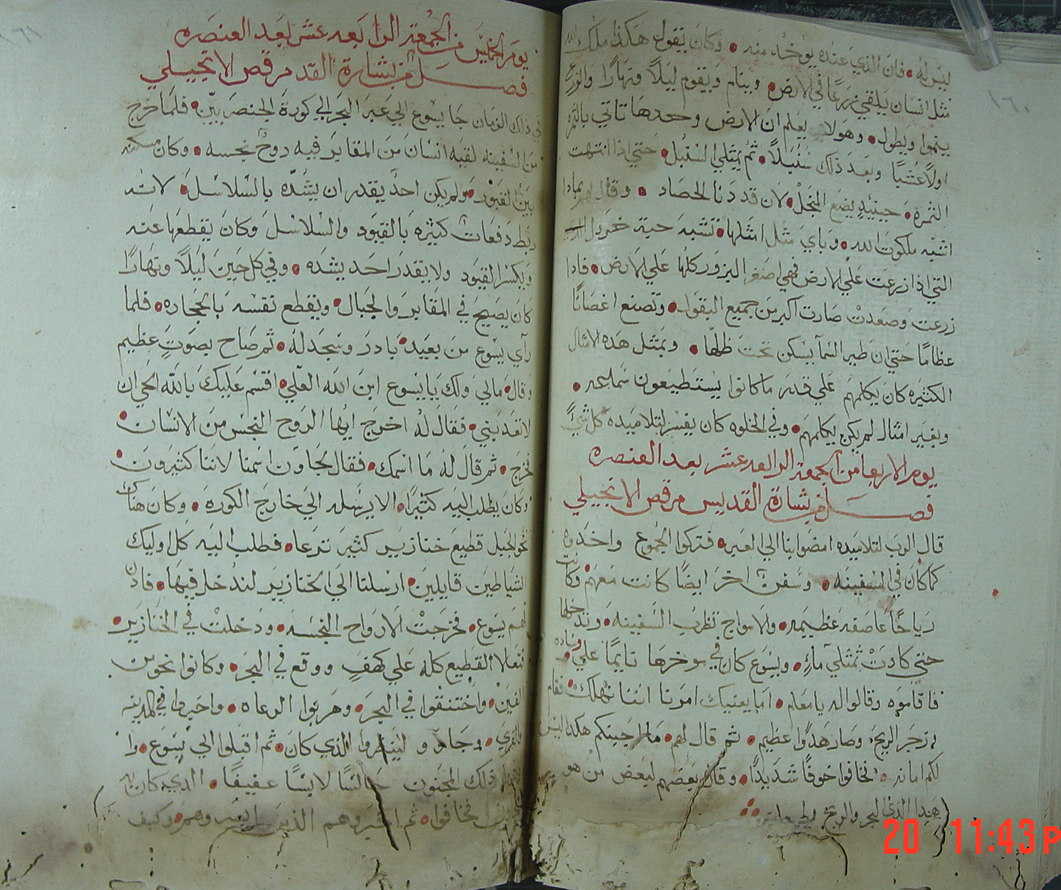 ليس له فان الذي عنده يوخد منه وكان يقول هكذا ملكوت الله
مثل انسان يلقي زرعًا في الارض وينام ويقوم ليلًا ونهارًا والزرع
ينموا ويطول وهو لا يعلم ان الارض وحدها تاتي بالثمره
اولًا عشبًا وبعد ذلك سنبلًا ثم يمتلي السنبل حتي اذا انتهت
الثمرة حينيدٍ يضع المنجل لان قد دنا الحصاد وقال لهم بماذا
اشبه ملكوت الله وباي مثل امثلها تشبه حبة خردل
التي اذا زرعت علي الارض فهي اصغر البزور كلها علي الارض فاذا
زرعت وصعدت صارت اكبر من جميع البقول وتصنع اغصانًا
عظامًا حتي ان طير السمآ يسكن تحت ظلها وبمثل هده الامثال
الكثيره كان يكلمهم علي قدر ما كانوا يستطيعون سماعه
وبغير امثال لم يكن يكلمهم وفي الخلوه كان يفسر لتلاميده كل شيٍ
يوم الاربعا من الجمعة الرابعه عشر بعد العنصره
فصل من بشارة القديس مرقص الانجيلي
قال الرب لتلاميده امضوا بنا الي العبر فتركوا الجموع واخدوه
كما كان في السفينه وسفن اخر ايضًا كانت معهم وكانت
رياحًا عاصفه عظيمه والامواج تضرب السفينه وتدخلها
حتي كادت تمتلي مآءٍ ويسوع كان في موخرها نايمًا علي وساده
فاقاموه وقالوا له يا معلم اما يعنيك امرنا اننا نهلك فقام
وزجر الريح وصار هدوًا عظيم ثم قال لهم ما احبنكم هكدا ليس
لكم امانه فخافوا خوفًا شديدًا وقال بعضهم لبعض من هو
هدا الذي البحر والريح يطيعانه
١٦٠
يوم الخميس من الجمعة الرابعه عشر بعد العنصره
فصل من بشارة القد مرقص الانجيلي
في ذلك الزمان جا يسوع الي عبر البحر الي كورة الجنصريين فلما خرج
من السفينه لقيه انسان من المقابر فيه روح نجسه وكان مسكنه
بين القبور ولم يكن احد يقدر ان يشده بالسلاسل لانه
ربط دفعات كثيره بالقيود والسلاسل وكان يقطعها عنه
ويكسر القيود ولا يقدر احد يشده وفي كل حين ليلًا ونهارًا
كان يصيح في المقابر والجبال ويقطع نفسه بالحجاره فلما
رآي يسوع من بعيد بادر وسجد له ثم صاح بصوت عظيم
وقال مالي ولك يا يسوع ابن الله العلي اقسم عليك بالله الحي ان
لا تعدبني فقال له اخرج ايها الروح النجس من الانسان
فخرج ثم قال له ما اسمك فقال لجاون اسمنا لاننا كثيرون
وكان يطلب اليه كثيرًا الا يرسله الي خارج الكوره وكان هناك
نحو الجبل قطيع خنازير كثير ترعا فطلب اليه كل اوليك
الشياطين قايلين ارسلنا الي الخنازير لندخل فيها فادن
لهم يسوع فخرجت الارواح النجسه ودخلت في الخنازير
القطيع كله علي كهف ووقع في البحر وكانوا نحو من
الفين واختنقوا في البحر وهربوا الرعاه واخبروا في المدينه
والقري وجاوو لينظروا الذي كان ثم اقبلوا الي يسوع
ذلك المجنون جالسًا لابسًا عفيفًا الدي كان به
فخافوا ثم اخبروهم الذين وكيف
١٦١
20 11:43 P